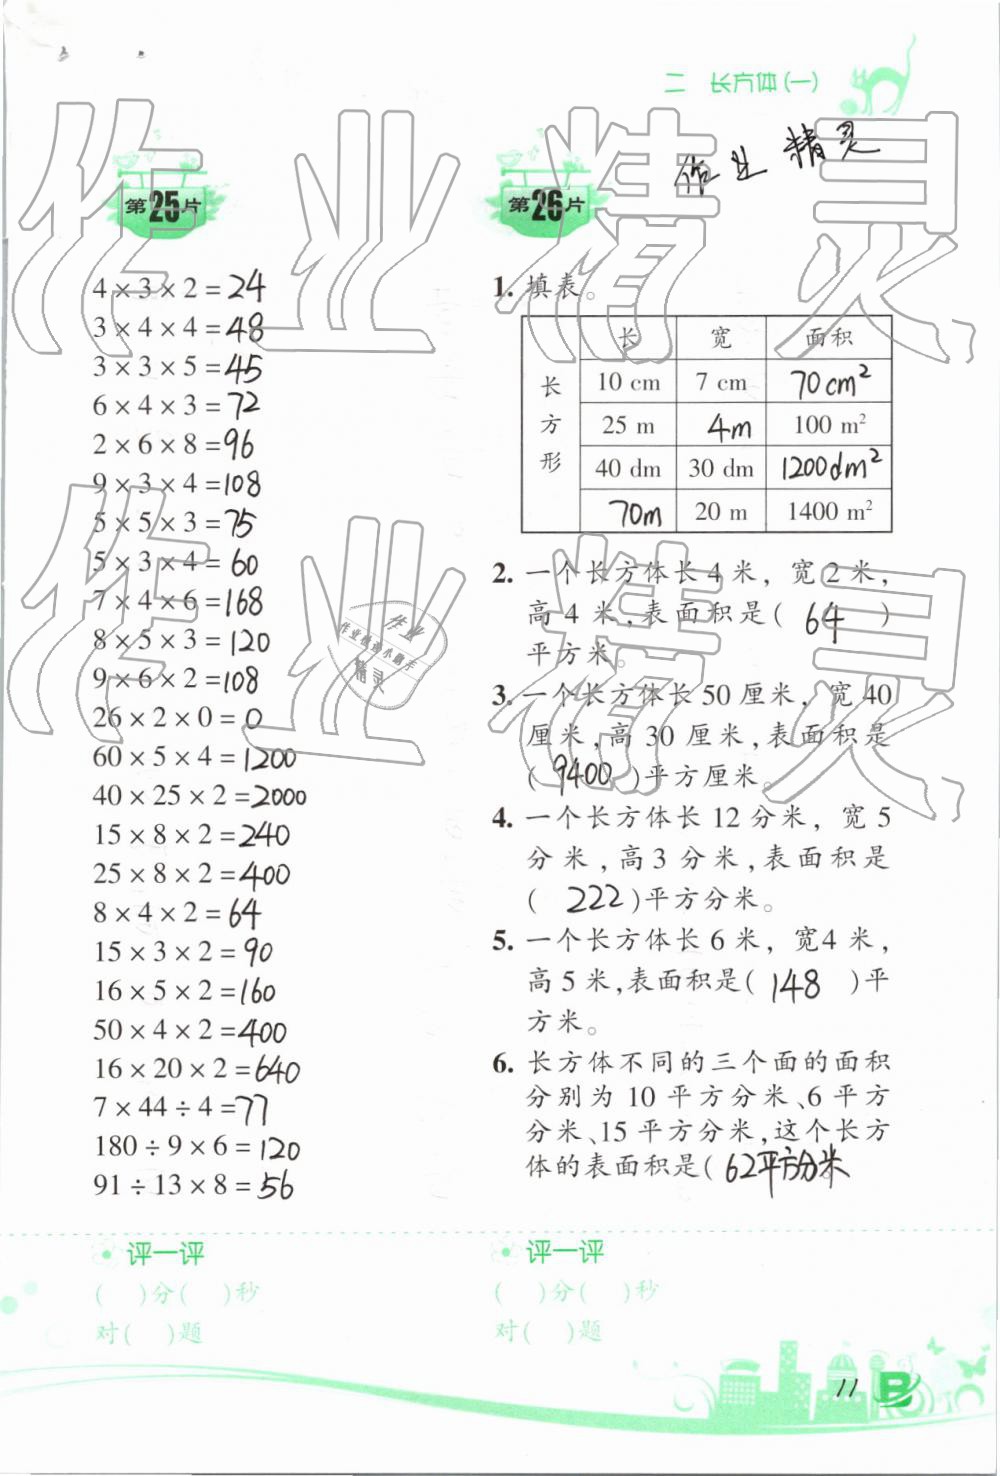 二 长方体(一)
作业精灵
第25片
4×3×2=24
3×4×4=48
3×3×5=45
6×4×3=72
2×6×8=96
9×3×4=108
5×5×3=75
5×3×4=60
7×4×6=168
8×5×3=120
9×6×2=108
26×2×0=0
60×5×4=1200
40×25×2=2000
15×8×2=240
25×8×2=400
8×4×2=64
15×3×2=90
16×5×2=160
50×4×2=400
16×20×2=640
7×44÷4=77
180÷9×6=120
91÷13×8=56
评一评
( )分( )秒
对( )题
第26片
1. 填表。
长 宽 面积
长方形
10 cm 7 cm 70cm²
25 m 4m 100 m²
40 dm 30 dm 1200dm²
70m 20 m 1400 m²
2. 一个长方体长4米，宽2米，
高4米,表面积是( 64 )
平方米。
3. 一个长方体长50厘米，宽40
厘米,高30厘米,表面积是
( 9400 )平方厘米。
4. 一个长方体长12分米，宽5
分米,高3分米,表面积是
( 222 )平方分米。
5. 一个长方体长6米，宽4米,
高5米,表面积是( 148 )平
方米。
6. 长方体不同的三个面的面积
分别为10平方分米、6平方
分米、15平方分米,这个长方
体的表面积是( 62平方分米
评一评
( )分( )秒
对( )题
11
作业精灵
作业精灵
作业
精灵